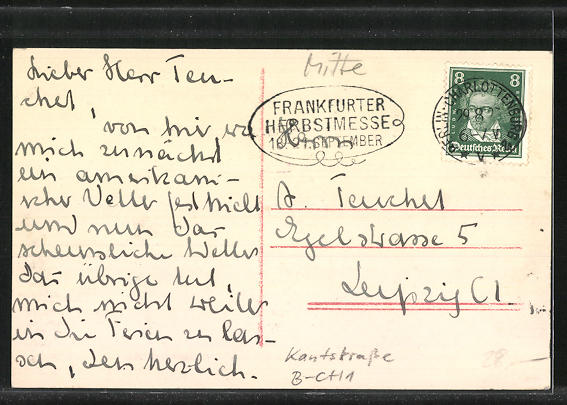 Lieber Herr Teu-
chel,
von hier, wo
mich zunächst
ein amerikani-
scher Vetter festhielt
und nun das
scheussliche Wetter
das übrige tut,
mich nicht weiter
in die Ferien zu las-
sen, sehr herzlich.
Mitte
FRANKFURTER
HERBSTMESSE
SEPTEMBER
BERLIN-CHARLOTTENBURG
8 8
Deutsches Reich
A. Teuchel
Egelstrasse 5
Leipzig C1.
Kantstraße
B-CH1
28,-